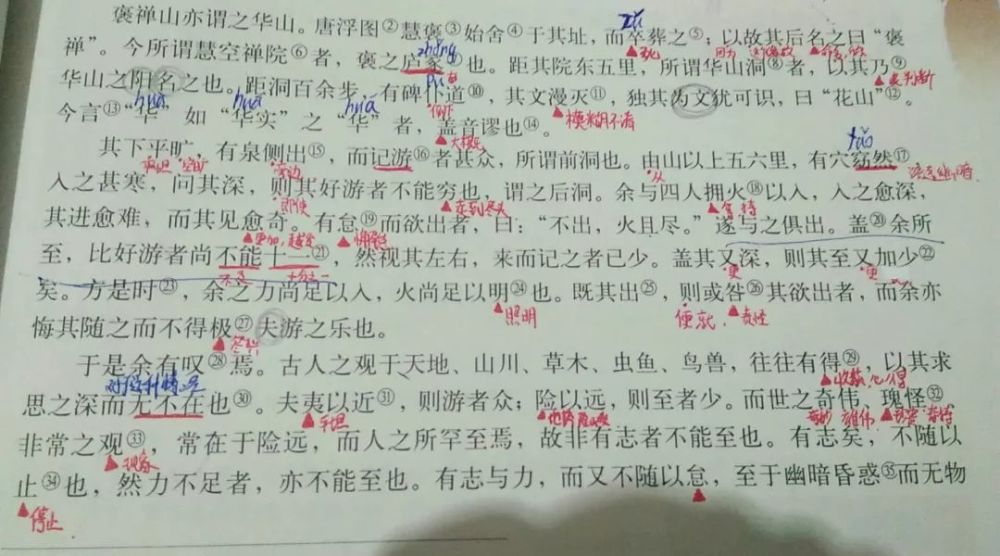 褒禅山亦谓之华山。唐浮图②慧褒③始舍④于其址，而卒葬之⑤；以故其后名之曰“褒
zú
死
命名
禅”。今所谓慧空禅院⑥者，褒之庐冢⑦也。距其院东五里，所谓华山洞⑧者，以其乃⑨
zhǒng
表判断
华山之阳名之也。距洞百余步，有碑仆道⑩，其文漫灭⑪，独其为文犹可识，曰“花山”⑫。
pū
模糊不清
今言⑬“华”如“华实”之“华”者，盖音谬也⑭。
huā
huá
huá
大概是
其下平旷，有泉侧出⑮，而记游⑯者甚众，所谓前洞也。由山以上五六里，有穴窈然⑰
yǎo
空旷
旁边
从
入之甚寒，问其深，则其好游者不能穷也，谓之后洞。余与四人拥火⑱以入，入之愈深，
即使
走到尽头
拿，持
其进愈难，而其见愈奇。有怠⑲而欲出者，曰：“不出，火且尽。”遂与之俱出。盖⑳余所
更加，越发
懈怠
至，比好游者尚不能十一㉑，然视其左右，来而记之者已少。盖其又深，则其至又加少㉒
不及
十分之一
更
更
矣。方是时㉓，余之力尚足以入，火尚足以明㉔也。既其出㉕，则或咎㉖其欲出者，而余亦
照明
便，就
责怪
悔其随之而不得极㉗夫游之乐也。
尽情
于是余有叹㉘焉。古人之观于天地、山川、草木、虫鱼、鸟兽，往往有得㉙，以其求
对这种情况
收获，心得
思之深而无不在也㉚。夫夷以近㉛，则游者众；险以远，则至者少。而世之奇伟，瑰怪㉜
平坦
奇妙
雄伟
非常之观㉝，常在于险远，而人之所罕至焉，故非有志者不能至也。有志矣，不随以
现象
止㉞也，然力不足者，亦不能至也。有志与力，而又不随以怠，至于幽暗昏惑㉟而无物
停止